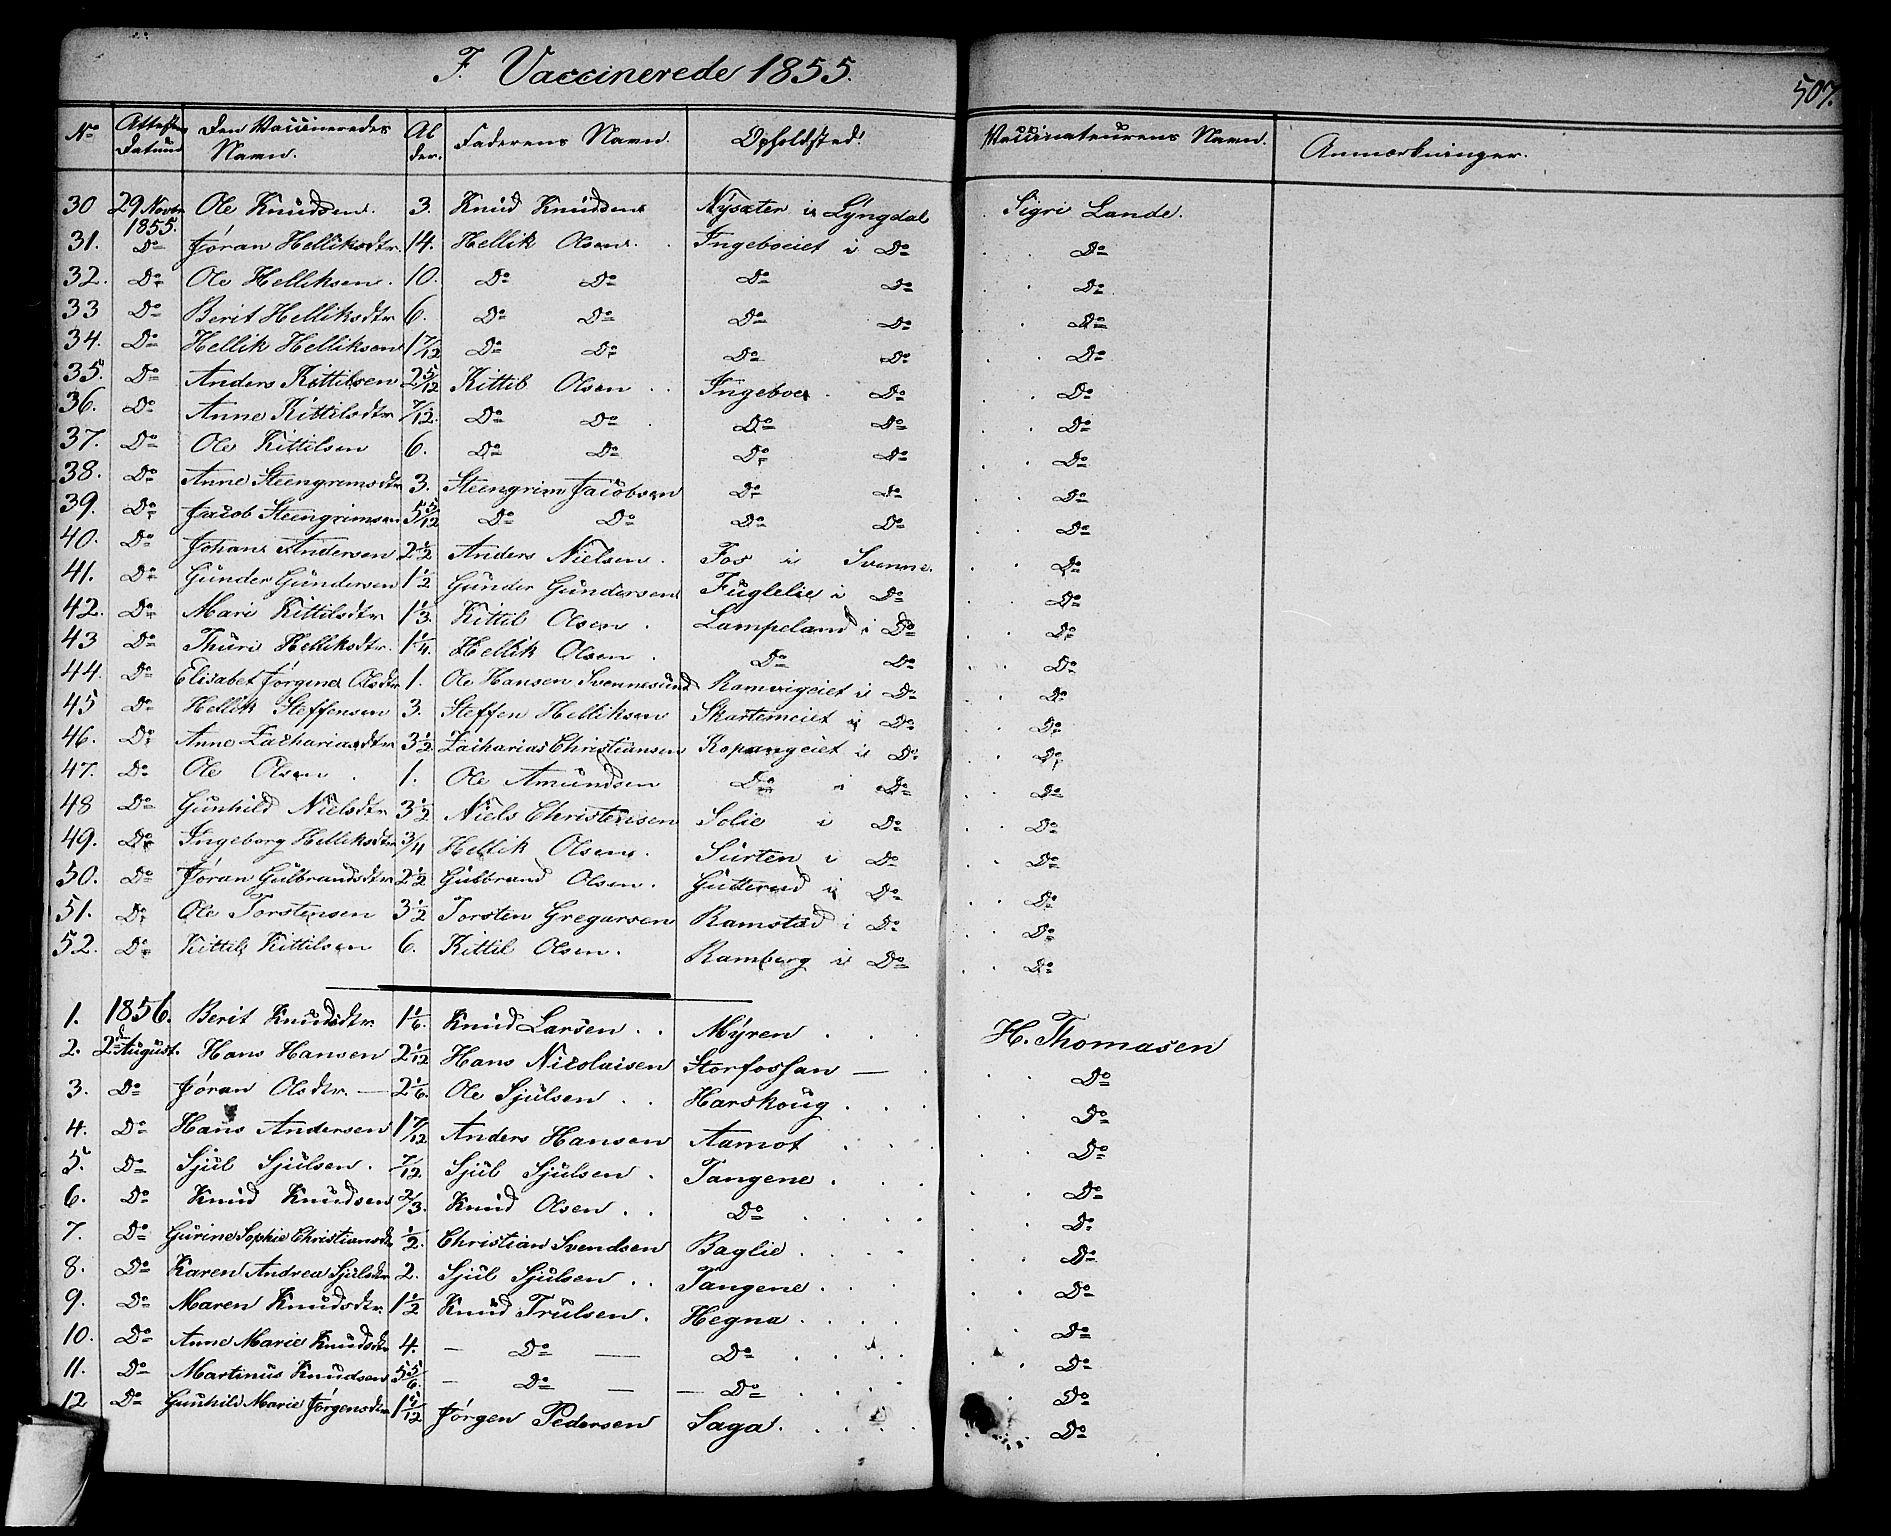 F. Vaccinerede 1855.
507.
No | Attestens Datum | Den Vaccineredes Navn. | Alder. | Faderens Navn. | Opholdsted. | Vaccinateurens Navn. | Anmærkninger.
30 | 29 Novbr 1855. | Ole Knudsen. | 3. | Knud Knudsen | Nysæter i Lyngdal | Sigri Lande.
31. | Do | Jøran Helliksdtr. | 14. | Hellik Olsen. | Ingeboeiet i Do | Do
32. | Do | Ole Helliksen. | 10. | Do Do | Do Do | Do
33 | Do | Berit Helliksdtr | 6. | Do Do | Do Do | Do
34. | Do | Hellik Helliksen | 1 7/12 | Do Do | Do Do | Do
35. | Do | Anders Kittilsen | 2 5/12 | Kittil Olsen | Ingeboe. Do | Do
36. | Do | Anne Kittilsdtr | 7/12. | Do Do | Do Do | Do
37. | Do | Ole Kittilsen | 6. | Do Do | Do Do | Do
38. | Do | Anne Steengrimsdtr | 3. | Steengrim Jacobsen | Do Do | Do
39. | Do | Jacob Steengrimsen | 5 5/12 | Do Do | Do Do | Do
40. | Do | Johans Andersen | 2 1/2 | Anders Nielsen. | Fos i Svenne. | Do
41. | Do | Gunder Gundersen | 1 1/2 | Gunder Gundersen | Fuglelie i Do | Do
42. | Do | Mari Kittilsdtr | 1 1/3. | Kittil Olsen. | Lampeland i Do | Do
43 | Do | Thuri Helliksdtr. | 1 1/4. | Hellik Olsen. | Do Do | Do
44. | Do | Elisabet Jørgine Olsdtr | 1. | Ole Hansen Svennesund | Ramvigeiet i Do | Do
45 | Do | Hellik Steffensen | 3. | Steffen Helliksen | Skartemeiet i Do | Do
46. | Do | Anne Zachariasdtr | 3 1/2 | Zacharias Christiansen | Kopangeiet i Do | Do
47. | Do | Ole Olsen. | 1. | Ole Amundsen | Do i Do | Do
48 | Do | Gunhild Nielsdtr | 3 1/2 | Niels Christensen | Solie i Do | Do
49. | Do | Ingeborg Helliksdtr | 3/4 | Hellik Olsen. | Surten i Do | Do
50. | Do | Jøran Gulbrandsdtr | 2 1/2 | Gulbrand Olsen. | Gutterud i Do | Do
51. | Do | Ole Torstensen | 3 1/2 | Torsten Gregarsen | Ramstad i Do | Do
52. | Do | Kittil Kittilsen | 6. | Kittil Olsen. | Ramberg i Do | Do
1. | 1856. | Berit Knudsdtr | 1 1/6. | Knud Larsen | Myren | H. Thomasen
2. | 2 August. | Hans Hansen | 2 1/12 | Hans Nicolaisen | Storfossan — | Do
3. | Do | Jøran Olsdtr. — | 2 1/6. | Ole Sjulsen | Harskoug | Do
4. | Do | Hans Andersen | 1 7/12 | Anders Hansen | Aamot | Do
5. | Do | Sjul Sjulsen. | 7/12. | Sjul Sjulsen. | Tangene. | Do
6. | Do | Knud Knudsen | 2/3. | Knud Olsen. | Do | Do
7. | Do | Gurine Sophie Christiansdtr | 1/2. | Christian Svendsen | Baglie. | Do
8. | Do | Karen Andrea Sjulsdtr | 2. | Sjul Sjulsen | Tangene. | Do
9. | Do | Maren Knudsdtr. | 1 1/2 | Knud Trulsen. | Hegna. | Do
10. | Do | Anne Marie Knudsdtr | 4. | — Do — | Do | Do
11. | Do | Martinus Knudsen | 5 5/6. | — Do — | — Do | Do
12 | Do | Gunhild Marie Jørgensdtr | 1 5/12 | Jørgen Pedersen | Saga. | Do